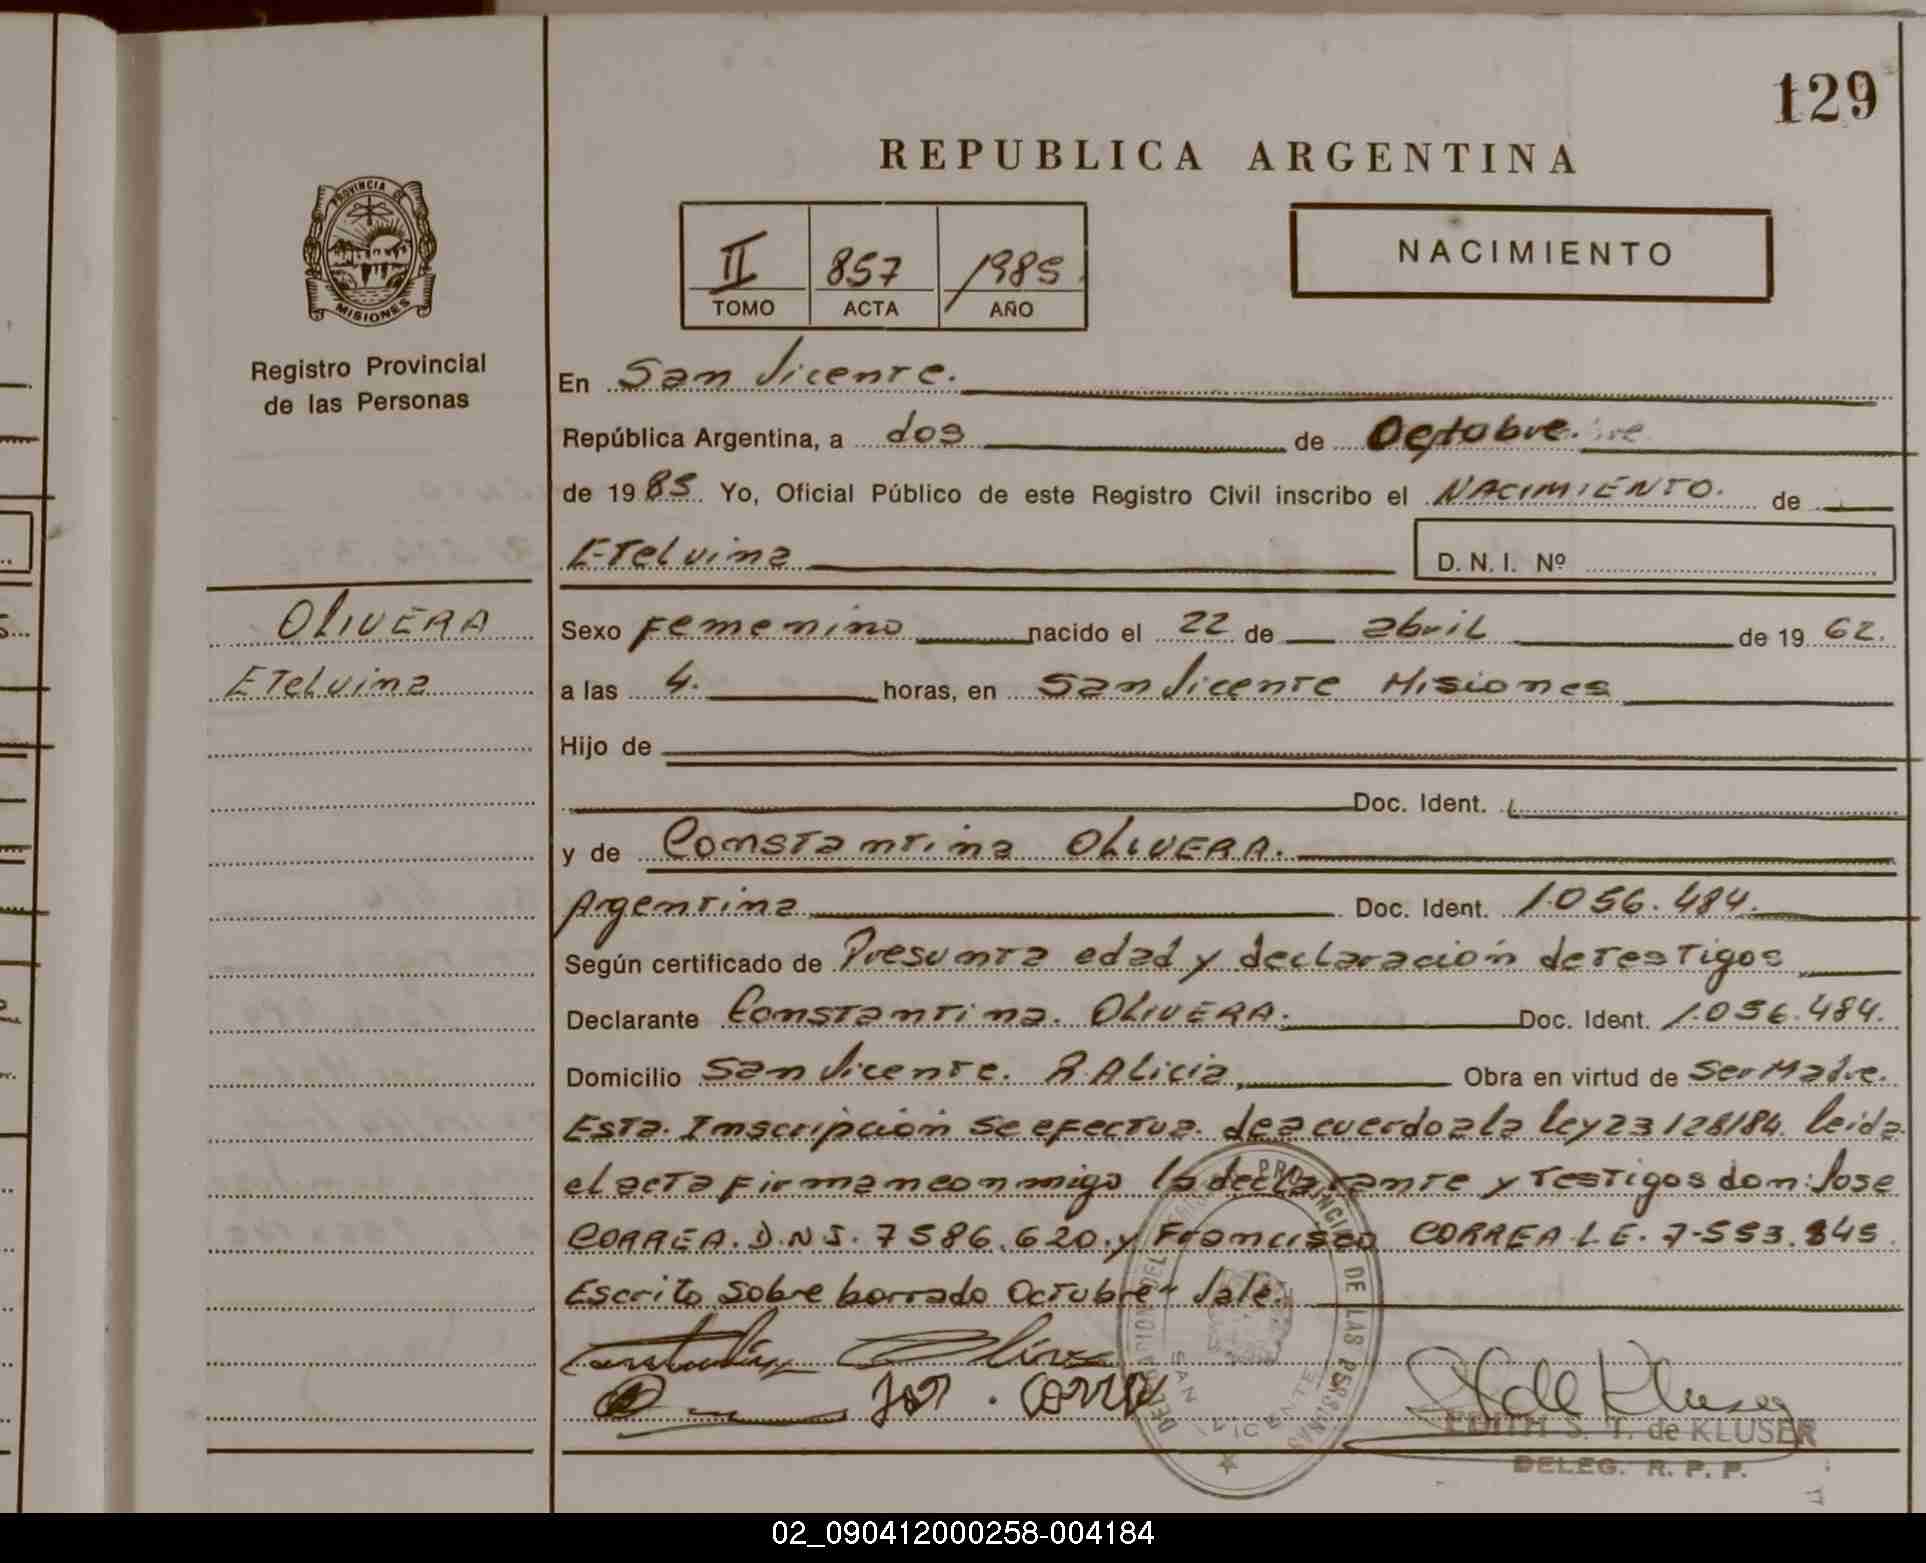 129
REPUBLICA ARGENTINA
PROVINCIA DE
MISIONES
Registro Provincial
de las Personas
II 857 1985
TOMO ACTA AÑO
NACIMIENTO
En San Vicente.
República Argentina, a dos de Octobre.
de 1985 Yo, Oficial Público de este Registro Civil inscribo el NACIMIENTO. de
Etelvina D. N. I. Nº
OLIVERA
Etelvina
Sexo Femenino nacido el 22 de abril de 1962.
a las 4. horas, en San Vicente Misiones
Hijo de
Doc. Ident.
y de Constantina OLIVERA.
Argentina Doc. Ident. 1.056.484.
Según certificado de Presunta edad y declaración de testigos
Declarante Constantina. OLIVERA. Doc. Ident. 1.056.484.
Domicilio San Vicente. R. Alicia, Obra en virtud de Ser Madre.
Esta. Inscripción se efectua. de acuerdo a la ley 23128/84. leida
el acta firman conmigo la declarante y testigos don: Jose
CORREA. D.N.I. 7586.620. y Francisco CORREA L.E. 7-553.845
Escrito sobre borrado Octubre - Vale.
José. Correa
EDITH S. T. de KLUSER
DELEG. R. P. P.
SAN VICENTE
02_090412000258-004184